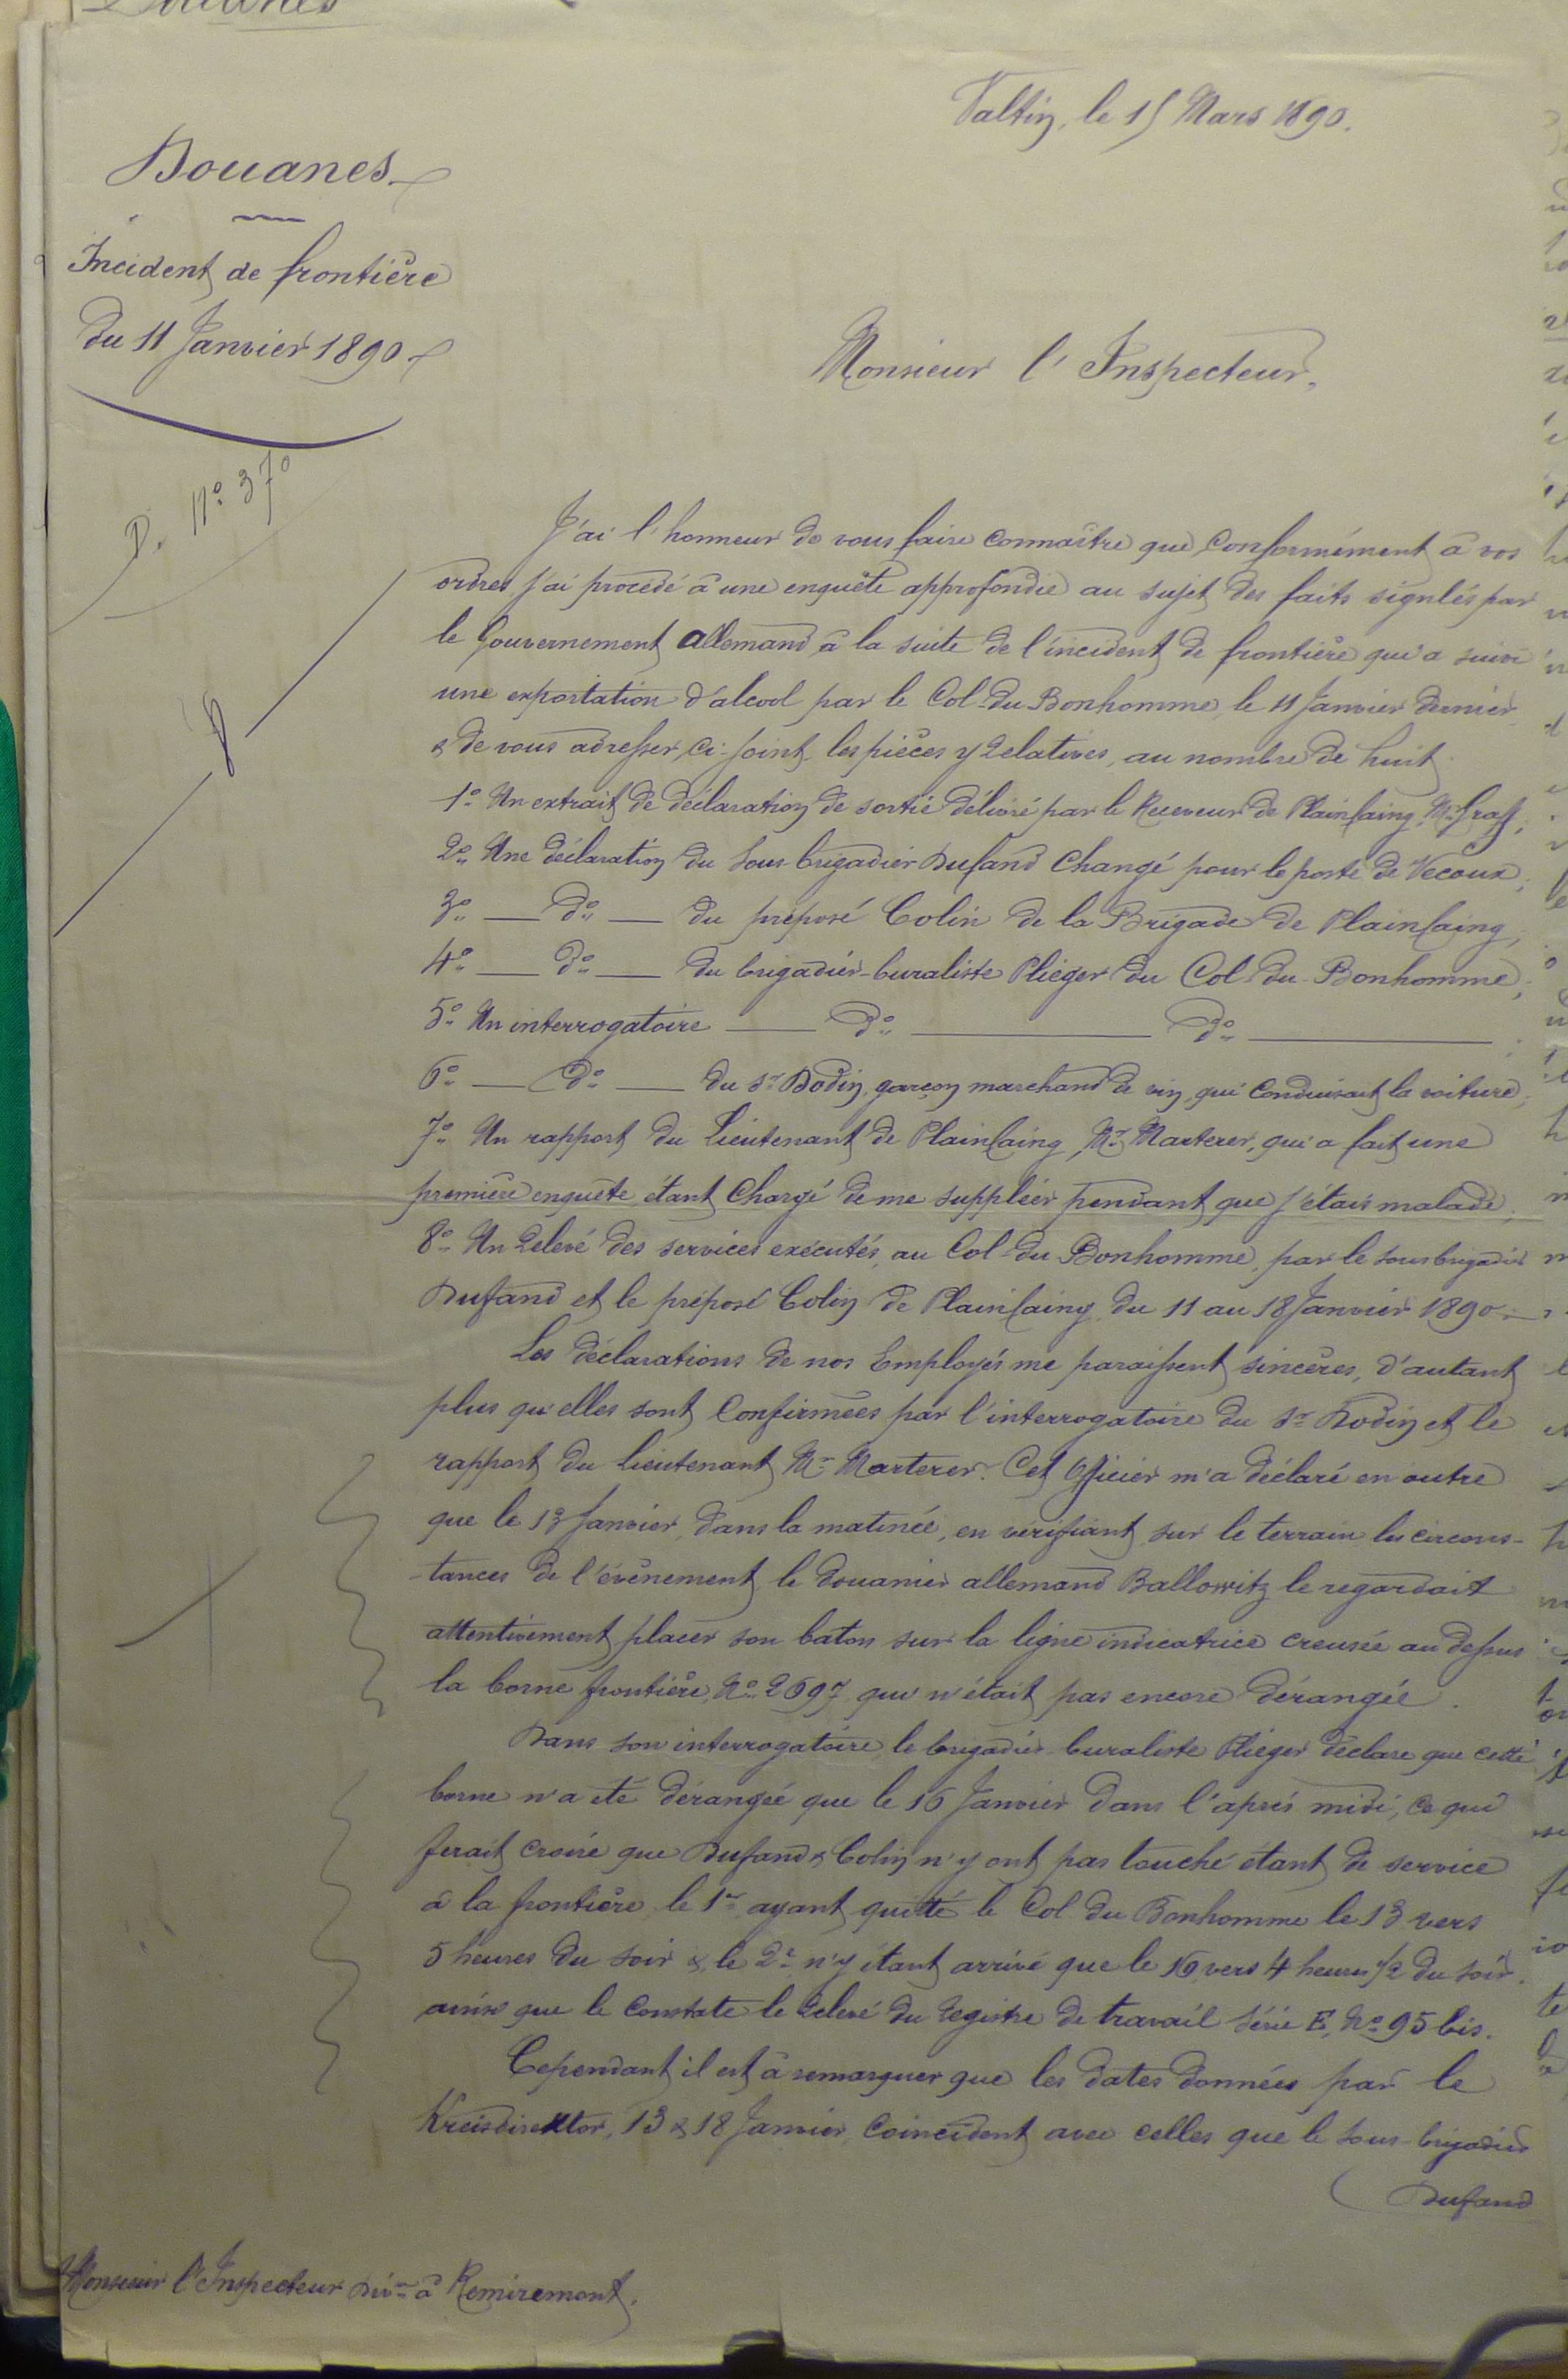 Douanes
Valtin, le 15 Mars 1890.
Douanes
Incident de frontière
du 11 Janvier 1890
D. N° 37
Monsieur l'Inspecteur,
J'ai l'honneur de vous faire connaître que, conformément à vos
ordres, j'ai procédé à une enquête approfondie au sujet des faits signlés par
le Gouvernement allemand, à la suite de l'incident de frontière qui a suivi
une exportation d'alcool par le Col-du-Bonhomme, le 11 Janvier dernier
& de vous adresser, ci-joint, les pièces y relatives, au nombre de huit.
8
1° Un extrait de déclaration de sortie délivré par le Receveur de Plainfaing, Mr Graff;
2° Une déclaration du sous-brigadier Dufand changé pour le poste de Vecoux;
3° — d° — du préposé Colin de la Brigade de Plainfaing,
4° — d° — du brigadier-buraliste Plieger du Col-du-Bonhomme;
5° Un interrogatoire — d° — d° — ;
6° — d° — du sr Bodin, garçon marchand de vin, qui conduisait la voiture;
7° Un rapport du Lieutenant de Plainfaing, Mr Marterer, qui a fait une
première enquête, étant chargé de me suppléer pendant que j'étais malade;
8° Un relevé des services exécutés, au Col-du-Bonhomme, par le sous brigadier
Dufand et le préposé Colin de Plainfaing, du 11 au 18 Janvier 1890.
Les déclarations de nos Employés me paraissent sincères, d'autant
plus qu'elles sont confirmées par l'interrogatoire du sr Bodin et le
rapport du lieutenant Mr Marterer. Cet Officier m'a déclaré en outre
que le 13 Janvier, dans la matinée, en vérifiant sur le terrain les circons-
-tances de l'évènement, le douanier allemand Ballowitz le regardait
attentivement placer son baton sur la ligne indicatrice creusée au dessus
la borne frontière, No 2697, qui n'était pas encore dérangée.
Dans son interrogatoire, le brigadier-buraliste Plieger déclare que cette
borne n'a été dérangée que le 16 Janvier dans l'après midi, ce qui
ferait croire que Dufand & Colin n'y ont pas touché étant de service
à la frontière, le 1er ayant quitté le Col du Bonhomme le 13 vers
5 heures du soir & le 2e n'y étant arrivé que le 16 vers 4 heures 1/2 du soir,
ainsi que le constate le relevé du registre de travail série E, No 95 bis.
Cependant il est à remarquer que les dates données par le
Kreisdirektor, 13 & 18 Janvier, coincident avec celles que le sous-brigadier
Dufand
Monsieur l'Inspecteur divre à Remiremont.